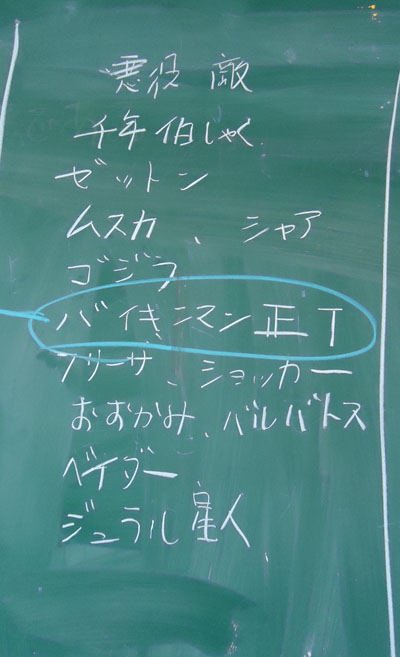 悪役 敵
千年伯しゃく
ゼットン
ムスカ、シャア
ゴジラ
バイキンマン 正T
フリーザ、ショッカー
おおかみ、バルバトス
ベイダー
ジュラル星人